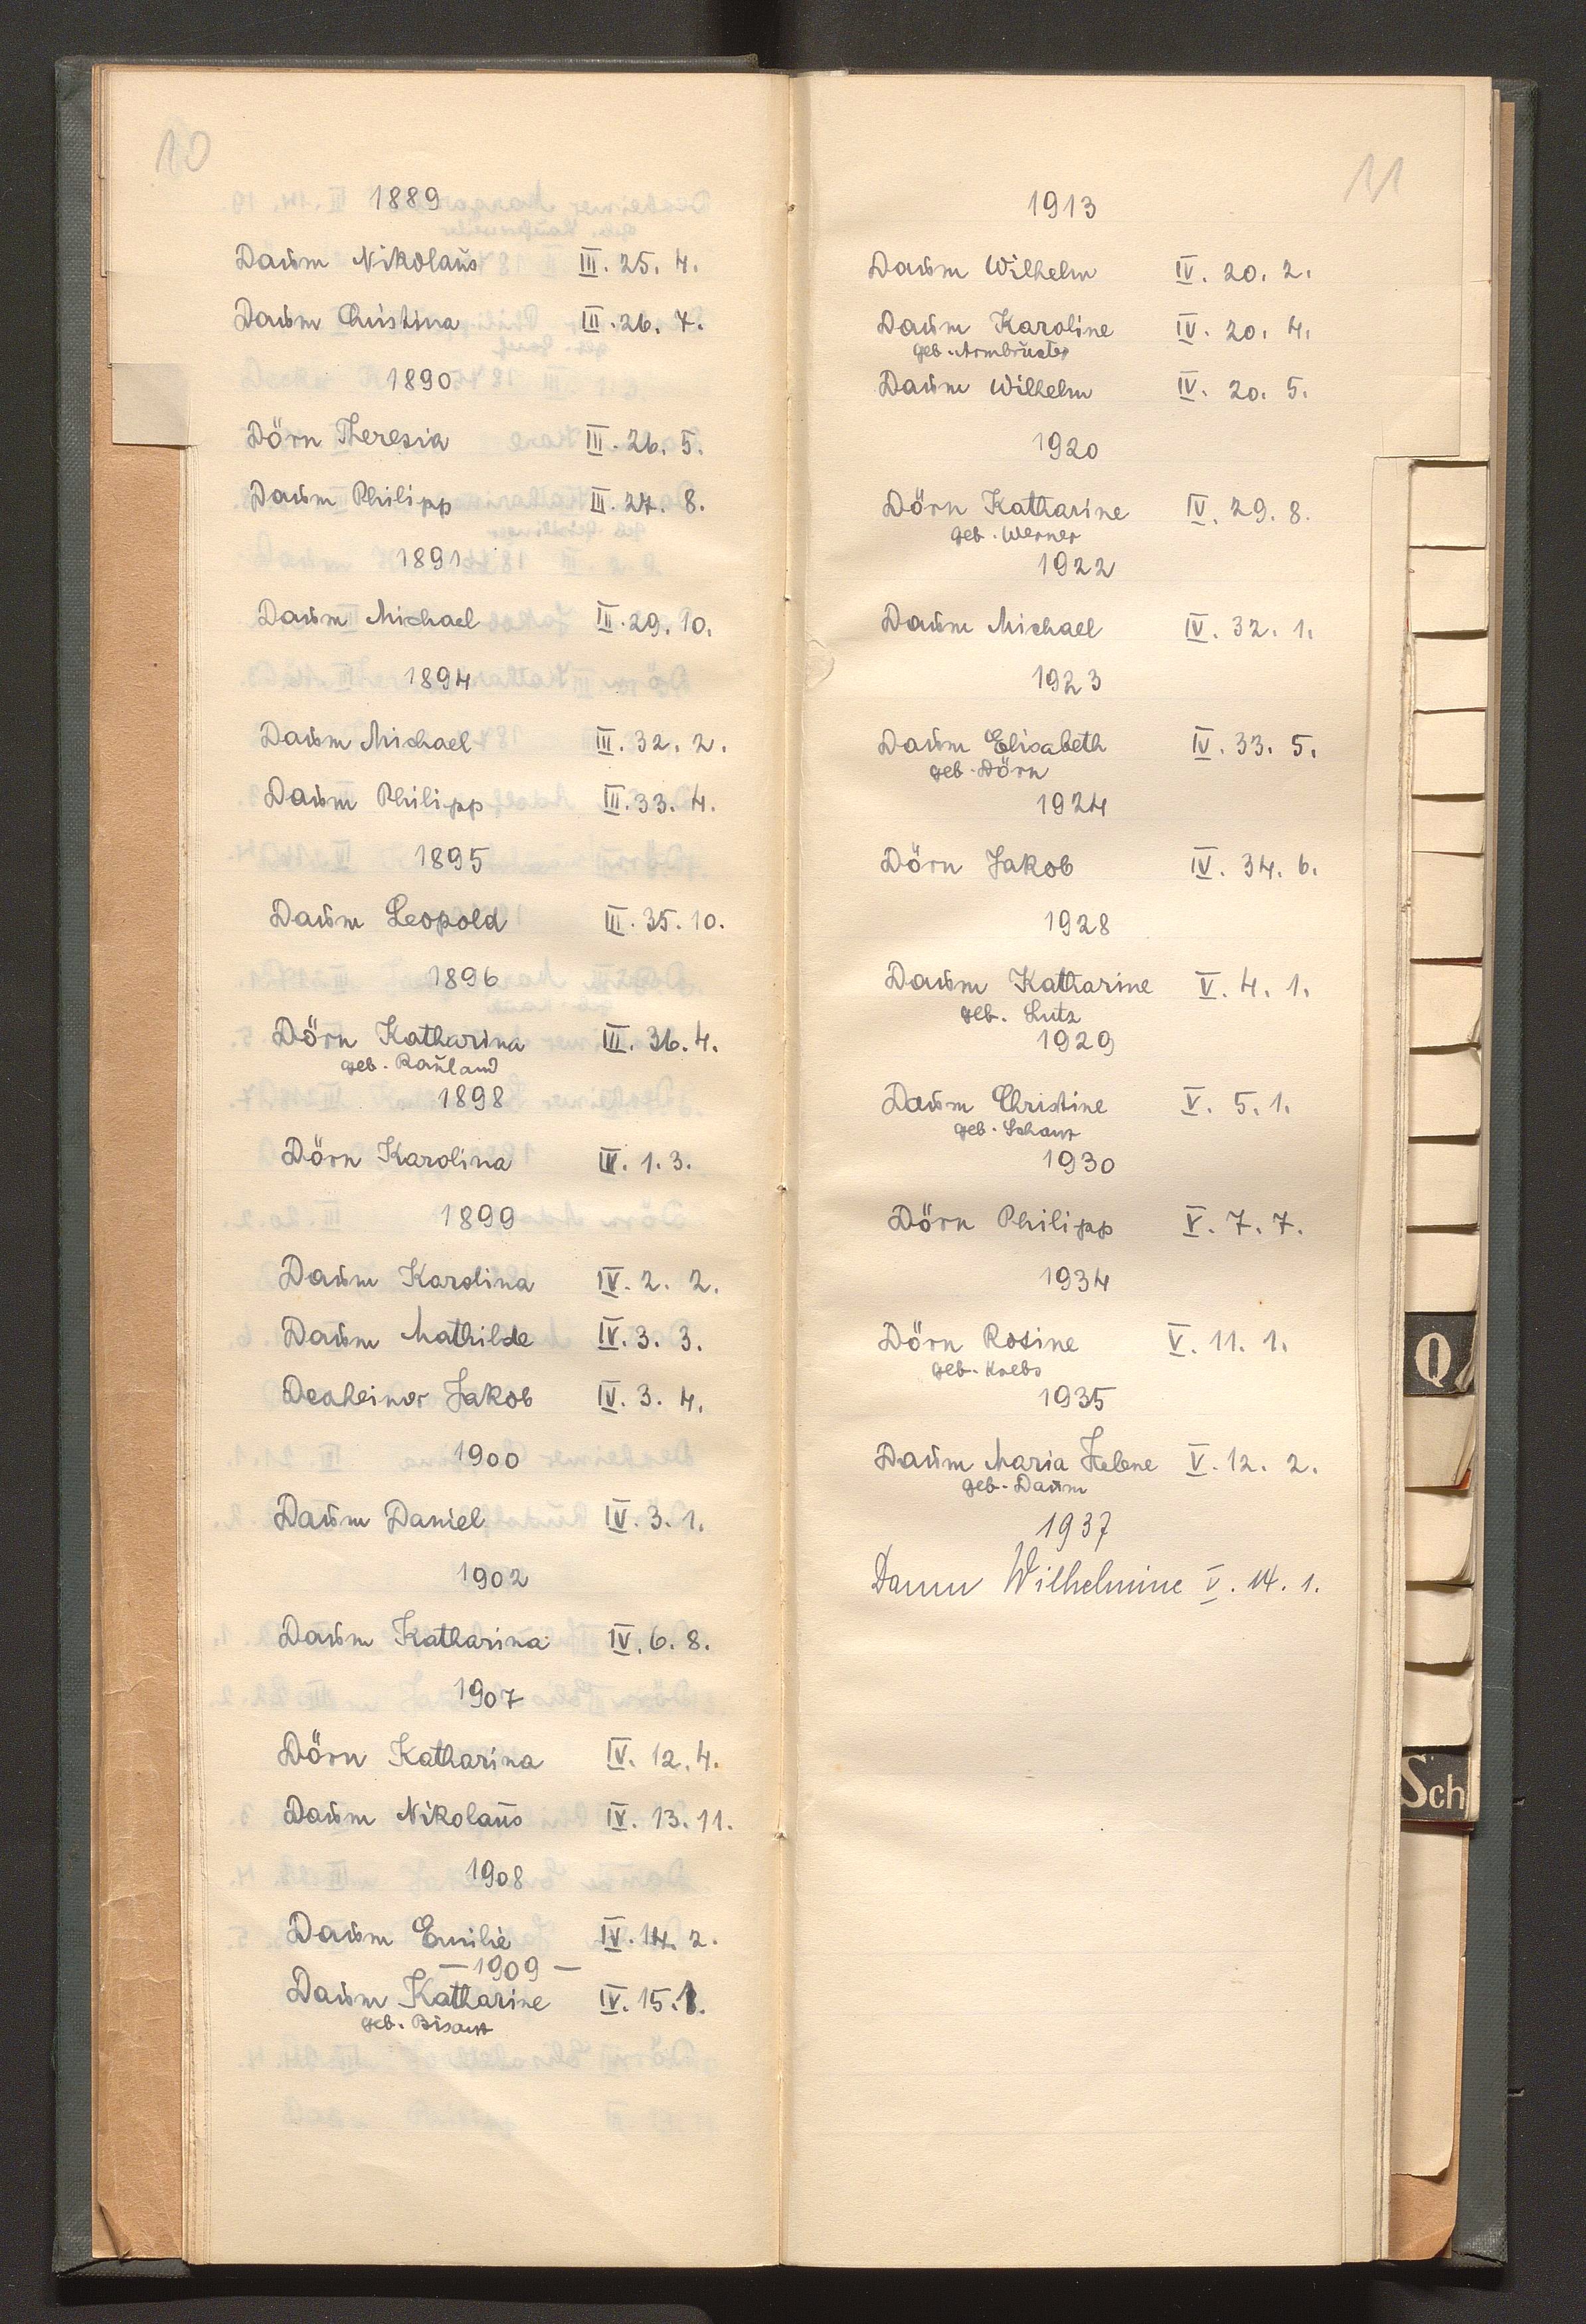 10
1889
Daum Nikolaus III. 25. 4.
Daum Christina III. 26. 7.
1890
Dörn Theresia III. 26. 5.
Daum Philipp III. 27. 8.
1891
Daum Michael III. 29. 10.
1894
Daum Michael III. 32. 2.
Daum Philipp III. 33. 4.
1895
Daum Leopold III. 35. 10.
1896
Dörn Katharina III. 36. 4.
geb. Rauland
1898
Dörn Karolina IV. 1. 3.
1899
Daum Karolina IV. 2. 2.
Daum Mathilde IV. 3. 3.
Desheimer Jakob IV. 3. 4.
1900
Daum Daniel IV. 3. 1.
1902
Daum Katharina IV. 6. 8.
1907
Dörn Katharina IV. 12. 4.
Daum Nikolaus IV. 13. 11.
1908
Daum Emilie IV. 14. 2.
— 1909 —
Daum Katharine IV. 15. 1.
geb. Bisant
11
1913
Daum Wilhelm IV. 20. 2.
Daum Karoline IV. 20. 4.
geb. Armbruster
Daum Wilhelm IV. 20. 5.
1920
Dörn Katharine IV. 29. 8.
geb. Werner
1922
Daum Michael IV. 32. 1.
1923
Daum Elisabeth IV. 33. 5.
geb. Dörn
1924
Dörn Jakob IV. 34. 6.
1928
Daum Katharine V. 4. 1.
geb. Lutz
1929
Daum Christine V. 5. 1.
geb. Schanz
1930
Dörn Philipp V. 7. 7.
1934
Dörn Rosine V. 11. 1.
geb. Krebs
1935
Daum Maria Helene V. 12. 2.
geb. Daum
1937
Daum Wilhelmine V. 14. 1.
Q
Sch